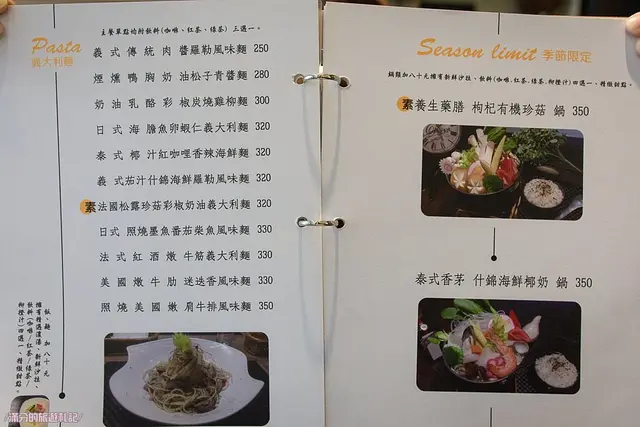 Pasta
義大利麵
主餐單點均附飲料(咖啡、紅茶、綠茶) 三選一。
義式傳統肉醬羅勒風味麵 250
煙燻鴨胸奶油松子青醬麵 280
奶油乳酪彩椒炭燒雞柳麵 300
日式海膽魚卵蝦仁義大利麵 320
泰式椰汁紅咖哩香辣海鮮麵 320
義式茄汁什錦海鮮羅勒風味麵 320
素 法國松露珍菇彩椒奶油義大利麵 320
日式照燒墨魚番茄柴魚風味麵 330
法式紅酒嫩牛筋義大利麵 330
美國嫩牛肋迷迭香風味麵 330
照燒美國嫩肩牛排風味麵 350
飯、麵 加八十元
擁有精選濃湯、新鮮沙拉、
飲料(咖啡/紅茶/綠茶/
柳橙汁)四選一、精緻甜點。
滿分的旅遊札記
Season limit 季節限定
鍋類加八十元擁有新鮮沙拉、飲料(咖啡、紅茶、綠茶、柳橙汁)四選一、精緻甜點。
素 養生藥膳 枸杞有機珍菇 鍋 350
泰式香茅 什錦海鮮椰奶 鍋 350